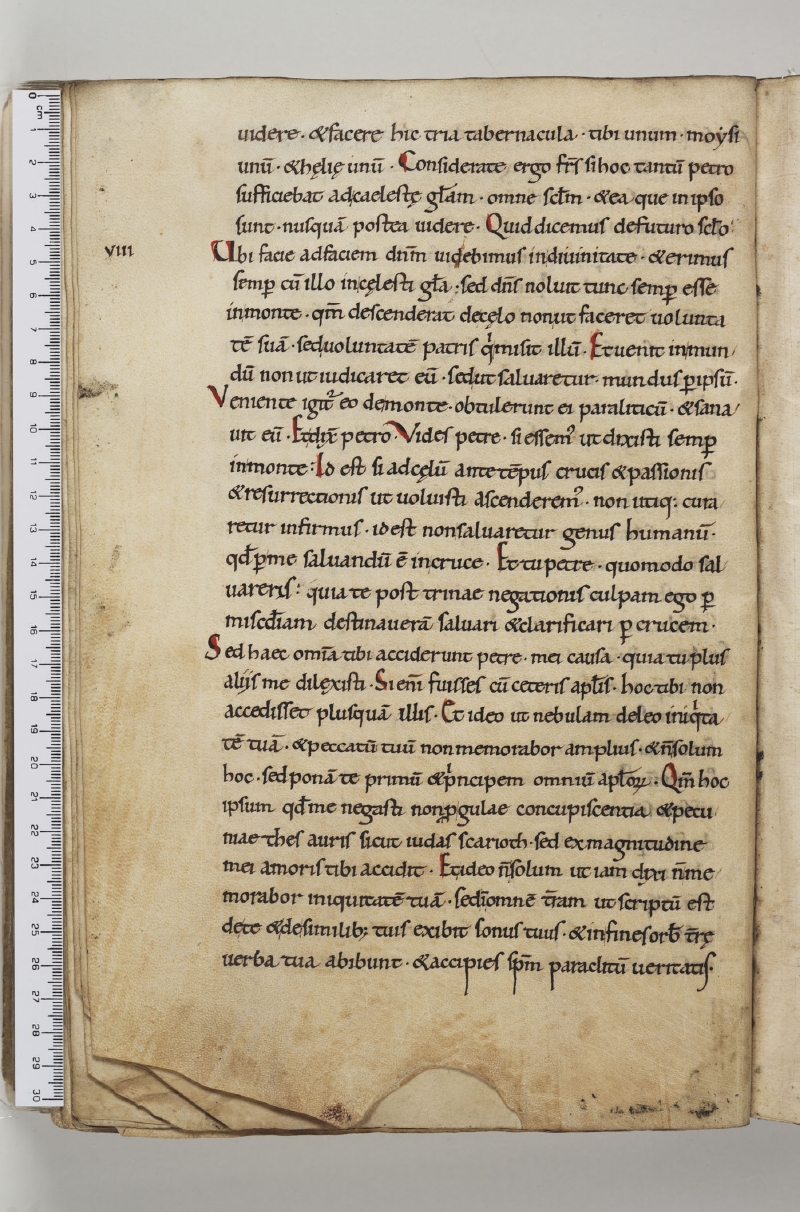 uidere · &facere hic tria tabernacula · tibi unum · moẏsi
unū · &helię unū · Considerate ergo frs̄ si hoc tantū petro
sufficiebat adcaelestę głam · omne scłm · &ea que inipso
sunt · nusquā postea uidere · Quid dicemus defuturo scło
VIII
Ubi facie adfaciem dnm̄ uidebimus indiuinitate · &erimus
semp̄ cū illo incęlesti gła · sed dns̄ noluit tunc semp̄ esse
inmonte · qm̄ descenderat decęlo nonut faceret uolunta
tē suā · seduoluntatē patris qͥmisit illū · Etuenit inmun
dū non ut iudicaret eū · sedut saluaretur · mundus ꝑipsū ·
Veniente igit̄ eo demonte · obtulerunt ei paraliticū · &sana
uit eū · Etdix̄ petro · Vides petre · si essem᾽ ut dixisti semp̄
inmonte : Id est si adcęlū ante tēpus crucis &passionis
&resurrectionis ut uoluisti ascenderem᾽ · non utiq; cura
retur infirmus · id est nonsaluaretur genus humanū ·
qd̄ ꝑme saluandū ē incruce · Et tu petre · quomodo sal
uareris : quia te post trinae negationis culpam ego ꝑ
miscdiam̄ destinauerā saluari &clarificari ꝑ crucem ·
Sed haec omīa tibi acciderunt petre · mei causa · quia tu plus
alijs me dilexisti · Si enī fuisses cū ceteris aptis̄ · hoc tibi non
accedisset plusquā illis · Et ideo ut nebulam deleo iniqͥta
tē tuā · &peccatū tuū non memorabor amplius · &n̄solum
hoc · sed ponā te primū &pͥncipem omniū aptoꝝ̄ · Qm̄ hoc
ipsum qd̄ me negasti non ꝓgulae concupiscentia &pecu
niae thesauris sicut iudas scarioth · sed ex magnitudine
mei amoris tibi accidit · Et ideo n̄solum ut iam dixi n̄me
morabor iniquitatē tuā · sed īomnē trām ut scriptū est
dete &desimilib; tuis exibit sonus tuus · &infines orb̄ trę̄
uerba tua abibunt · &accipies spm̄ paraclitū ueritatis ·